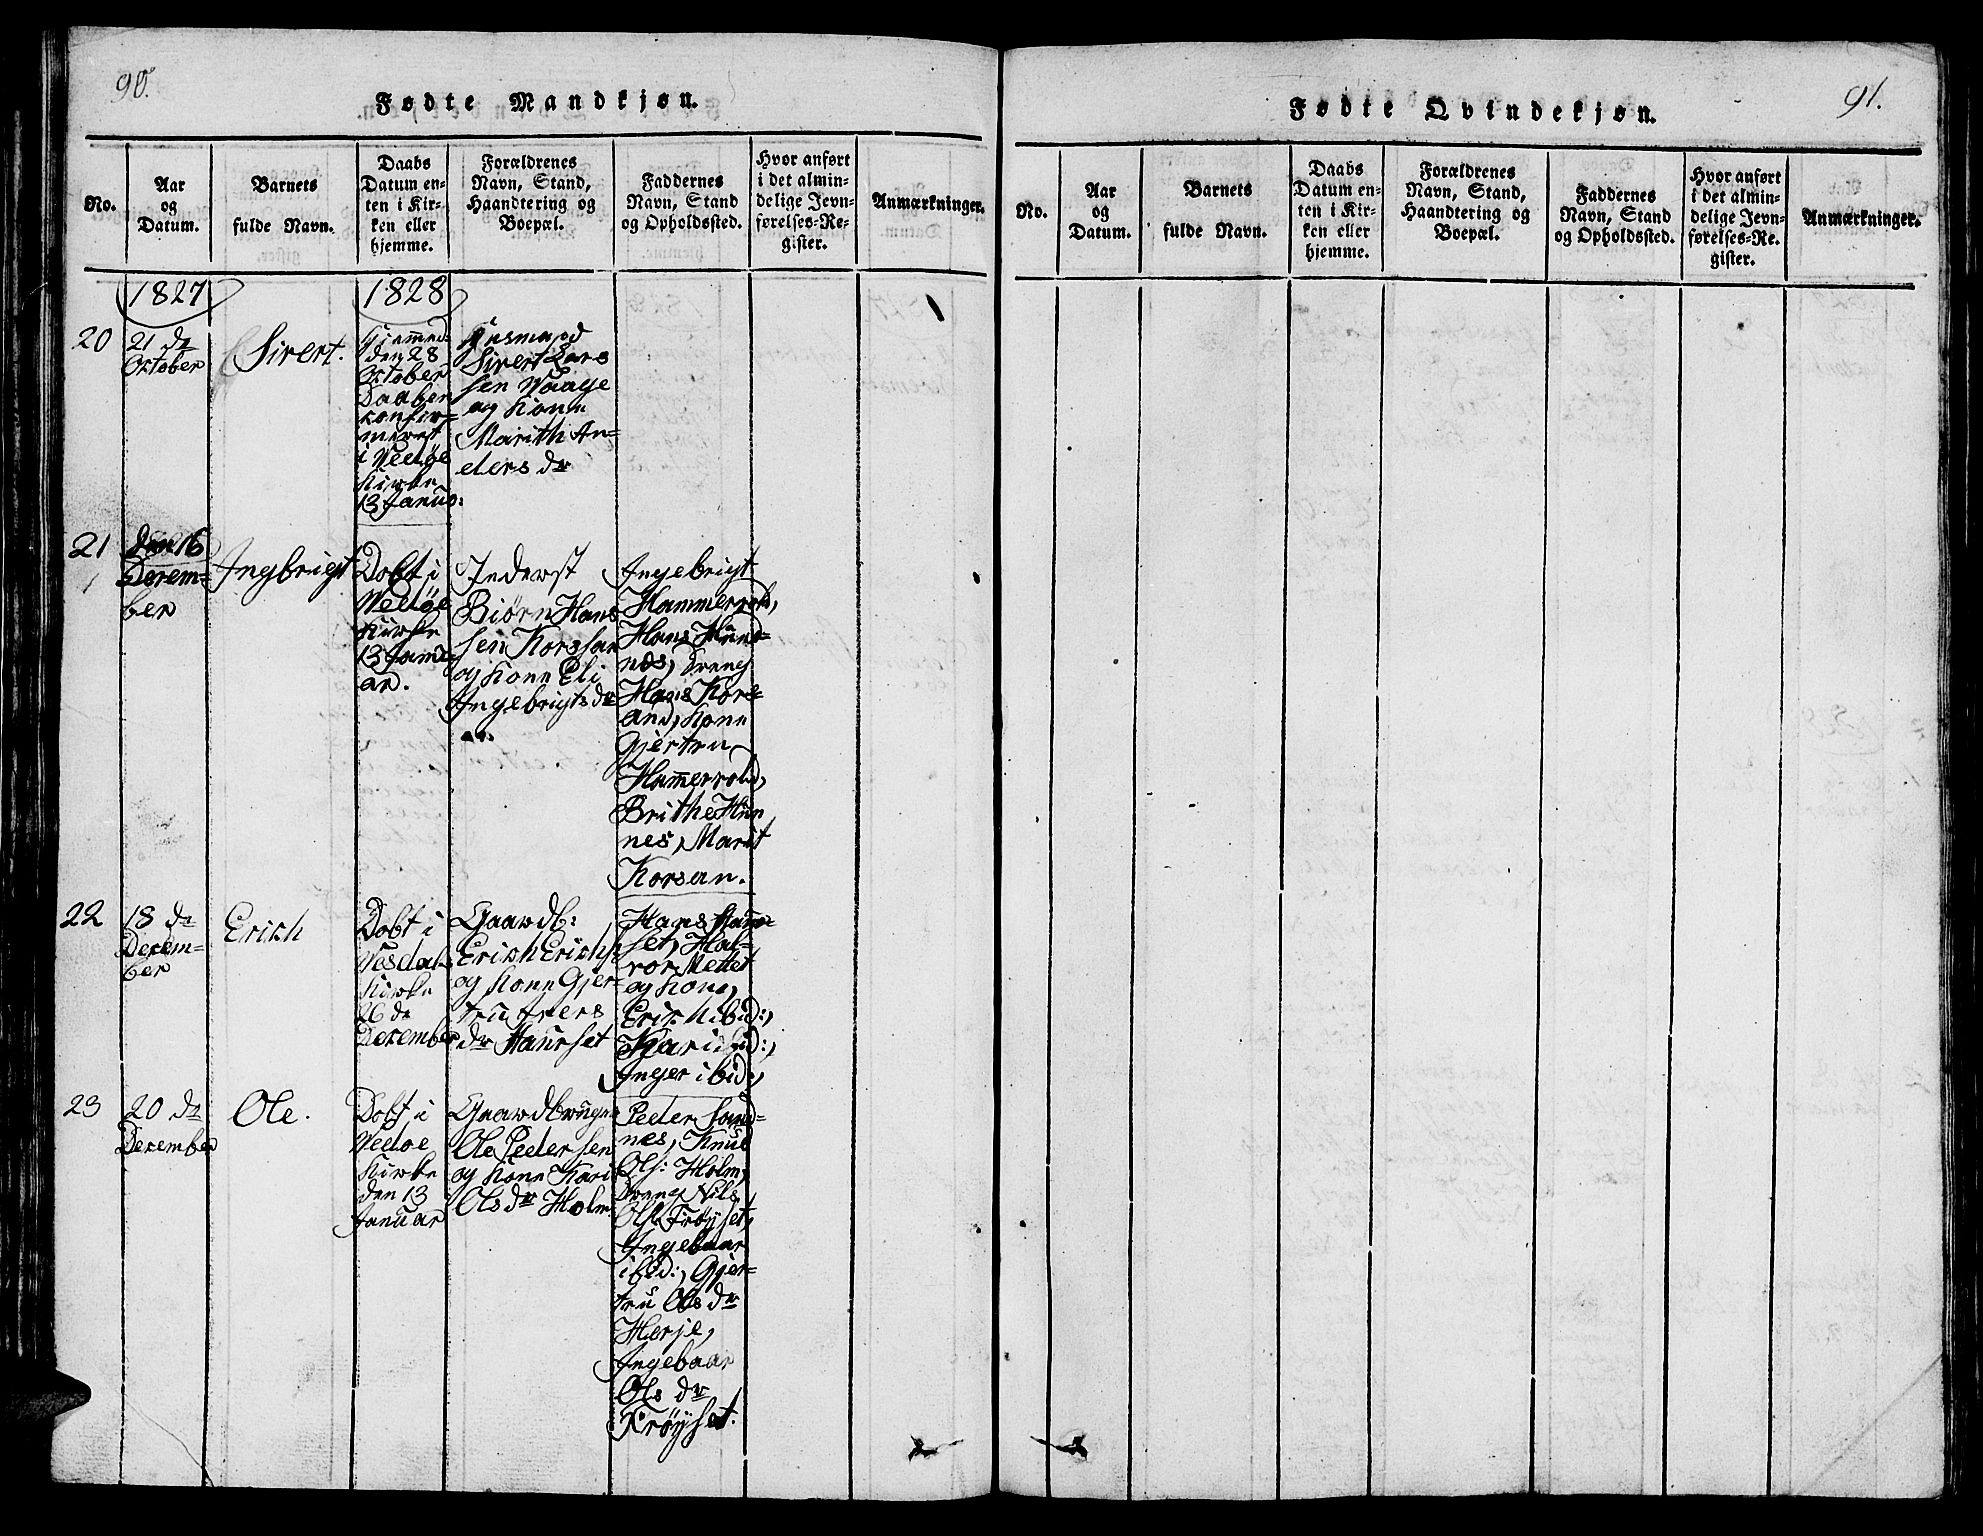 90.
Fødte Mandkjøn.
No.
Aar
og
Datum.
Barnets
fulde Navn.
Daabs
Datum en-
ten i Kir-
ken eller
hjemme.
Forældrenes
Navn, Stand,
Haandtering og
Boepæl.
Faddernes
Navn, Stand
og Opholdssted.
Hvor anført
i det almin-
delige Jevn-
førelses-Re-
gister.
Anmærkninger.
1827
1828
20
21 de
October
Sivert.
Hjemmed
den 28
October
Daaben
confir-
meret
i Vedøe
Kirke
13 Janua:
Husmand
Sivert Lars
sen Vaage
og Kone
Marith An-
ders dr
21
den 16
Decem-
ber
Ingbrigt
Dobt i
Vedøe
Kirke
13 Janu-
ar.
Inderst
Biørn Hans
sen Korssan
og Kone Eli
Ingebrigts dr
Ingebrigt
Hammervold,
Hans Hund-
nes, Dreng
Hans Kors-
and, Kone
Gjertru
Hammervold,
Brithe Hun
nes, Marit
Korsan.
22
18 de
Decem-
ber
Erich
Dobt i
Vesdals
Kirke
26 de
December
Gaardb:
Erich Erichs
og Kone Gjer-
tru Ivers
dr Haurset
Hans Haur-
set, Hal-
vor Mettet
og Kone,
Erich ibid:,
Kari ibid:,
Inger ibid:,
23
20 de
December
Ole.
Dobt i
Vedøe
Kirke
den 13
Januar
Gaardbruger
Ole Pedersen
og Kone Kari
Ols dr Holm
Peder Sand-
nes, Knud
Ols: Holm,
Dreng Nils
Ols Frøyset,
Ingebaar
ibid:, Gjer-
tru Ols dr
Herje,
Ingebaar
Ols dr
Frøyset.
91.
Fødte Qvindekjøn.
No.
Aar
og
Datum.
Barnets
fulde Navn.
Daabs
Datum en-
ten i Kir-
ken eller
hjemme.
Forældrenes
Navn, Stand,
Haandtering og
Boepæl.
Faddernes
Navn, Stand
og Opholdssted.
Hvor anført
i det almin-
delige Jevn-
førelses-Re-
gister.
Anmærkninger.